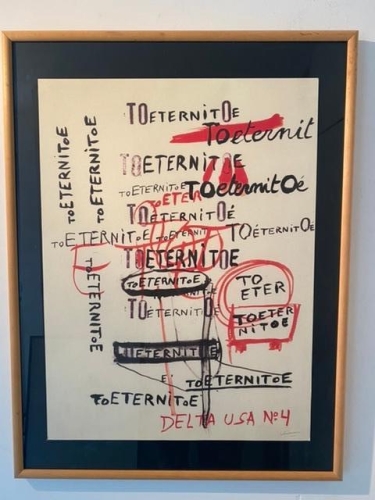 TOETERNITOE
TOeternit
TOETERNITOE
TOETERNITOE
TOeternitOé
TOETER
TOETERNITOé
TOETERNITOE
TOETERNITOE
TOÉTERNITOÉ
TOETERNITOE
TOETERNITOE
TOETERNITOE
TOETERNITOE
TOETERNITOE
TO
ETER
TOETERNITOE
TOETER
NITOE
TOETERNITOE
TOETERNITOE
TOETERNITOE
DELTA USA No4